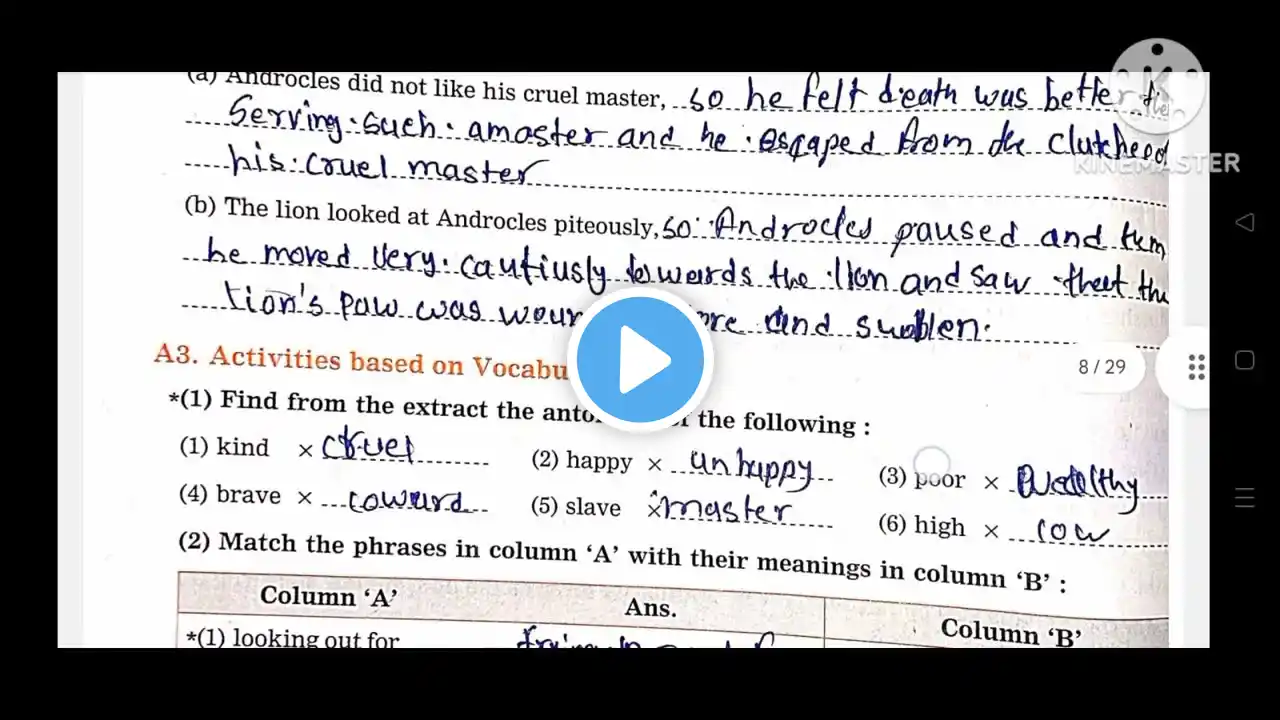 (a) Androcles did not like his cruel master, so he felt death was better
Serving such a master and he escaped from the Clutches of
KINEMASTER
his cruel master
(b) The lion looked at Androcles piteously, so Androcles paused and
he moved very cautiusly towards the lion and saw that the
lion's paw was and swollen.
A3. Activities based on Vocabu
8 / 29
*(1) Find from the extract the anto the following :
(1) kind × cruel (2) happy × unhappy (3) poor × wealthy
(4) brave × coward (5) slave × master (6) high × low
(2) Match the phrases in column 'A' with their meanings in column 'B' :
Column 'A' Ans. Column 'B'
*(1) looking out for